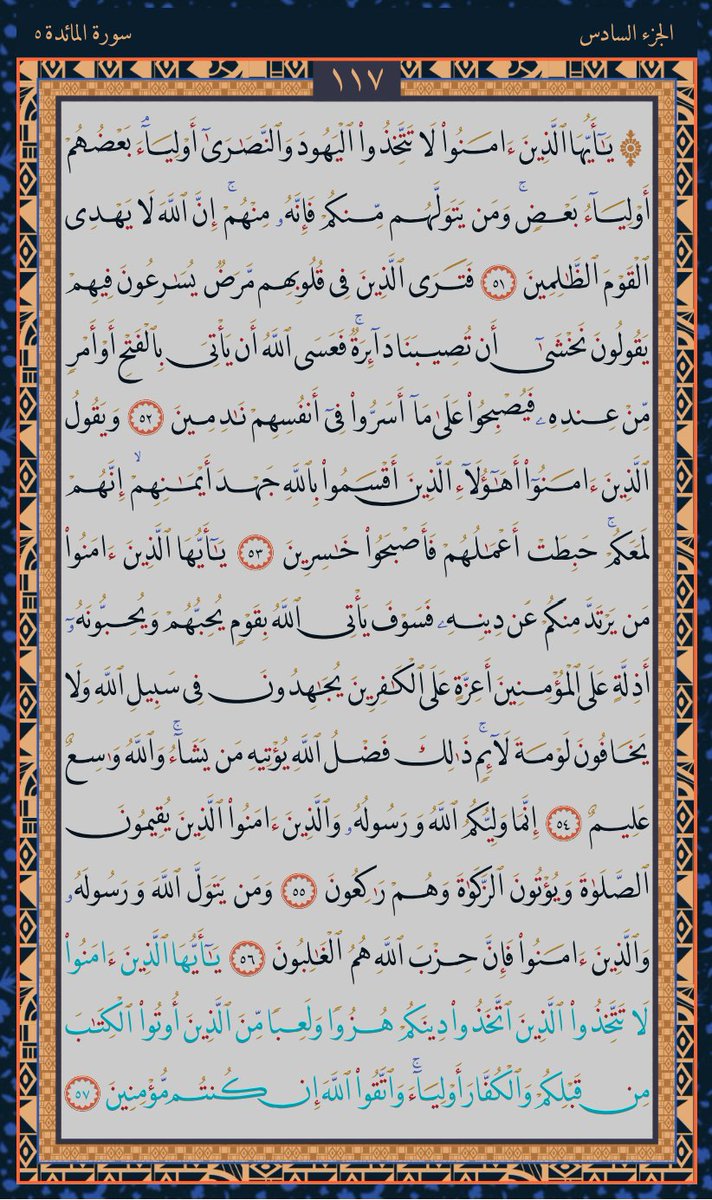 الجزء السادس
سورة المائدة ٥
١١٧
۞ يَٰٓأَيُّهَا ٱلَّذِينَ ءَامَنُوا۟ لَا تَتَّخِذُوا۟ ٱلْيَهُودَ وَٱلنَّصَٰرَىٰٓ أَوْلِيَآءَۘ بَعْضُهُمْ
أَوْلِيَآءُ بَعْضٍۚ وَمَن يَتَوَلَّهُم مِّنكُمْ فَإِنَّهُۥ مِنْهُمْۗ إِنَّ ٱللَّهَ لَا يَهْدِى
ٱلْقَوْمَ ٱلظَّٰلِمِينَ ٥١ فَتَرَى ٱلَّذِينَ فِى قُلُوبِهِم مَّرَضٌ يُسَٰرِعُونَ فِيهِمْ
يَقُولُونَ نَخْشَىٰٓ أَن تُصِيبَنَا دَآئِرَةٌۚ فَعَسَى ٱللَّهُ أَن يَأْتِىَ بِٱلْفَتْحِ أَوْ أَمْرٍ
مِّنْ عِندِهِۦ فَيُصْبِحُوا۟ عَلَىٰ مَآ أَسَرُّوا۟ فِىٓ أَنفُسِهِمْ نَٰدِمِينَ ٥٢ وَيَقُولُ
ٱلَّذِينَ ءَامَنُوٓا۟ أَهَٰٓؤُلَآءِ ٱلَّذِينَ أَقْسَمُوا۟ بِٱللَّهِ جَهْدَ أَيْمَٰنِهِمْۙ إِنَّهُمْ
لَمَعَكُمْۚ حَبِطَتْ أَعْمَٰلُهُمْ فَأَصْبَحُوا۟ خَٰسِرِينَ ٥٣ يَٰٓأَيُّهَا ٱلَّذِينَ ءَامَنُوا۟
مَن يَرْتَدَّ مِنكُمْ عَن دِينِهِۦ فَسَوْفَ يَأْتِى ٱللَّهُ بِقَوْمٍ يُحِبُّهُمْ وَيُحِبُّونَهُۥٓ
أَذِلَّةٍ عَلَى ٱلْمُؤْمِنِينَ أَعِزَّةٍ عَلَى ٱلْكَٰفِرِينَ يُجَٰهِدُونَ فِى سَبِيلِ ٱللَّهِ وَلَا
يَخَافُونَ لَوْمَةَ لَآئِمٍۚ ذَٰلِكَ فَضْلُ ٱللَّهِ يُؤْتِيهِ مَن يَشَآءُۚ وَٱللَّهُ وَٰسِعٌ
عَلِيمٌ ٥٤ إِنَّمَا وَلِيُّكُمُ ٱللَّهُ وَرَسُولُهُۥ وَٱلَّذِينَ ءَامَنُوا۟ ٱلَّذِينَ يُقِيمُونَ
ٱلصَّلَوٰةَ وَيُؤْتُونَ ٱلزَّكَوٰةَ وَهُمْ رَٰكِعُونَ ٥٥ وَمَن يَتَوَلَّ ٱللَّهَ وَرَسُولَهُۥ
وَٱلَّذِينَ ءَامَنُوا۟ فَإِنَّ حِزْبَ ٱللَّهِ هُمُ ٱلْغَٰلِبُونَ ٥٦ يَٰٓأَيُّهَا ٱلَّذِينَ ءَامَنُوا۟
لَا تَتَّخِذُوا۟ ٱلَّذِينَ ٱتَّخَذُوا۟ دِينَكُمْ هُزُوًا وَلَعِبًا مِّنَ ٱلَّذِينَ أُوتُوا۟ ٱلْكِتَٰبَ
مِن قَبْلِكُمْ وَٱلْكُفَّارَ أَوْلِيَآءَۚ وَٱتَّقُوا۟ ٱللَّهَ إِن كُنتُم مُّؤْمِنِينَ ٥٧